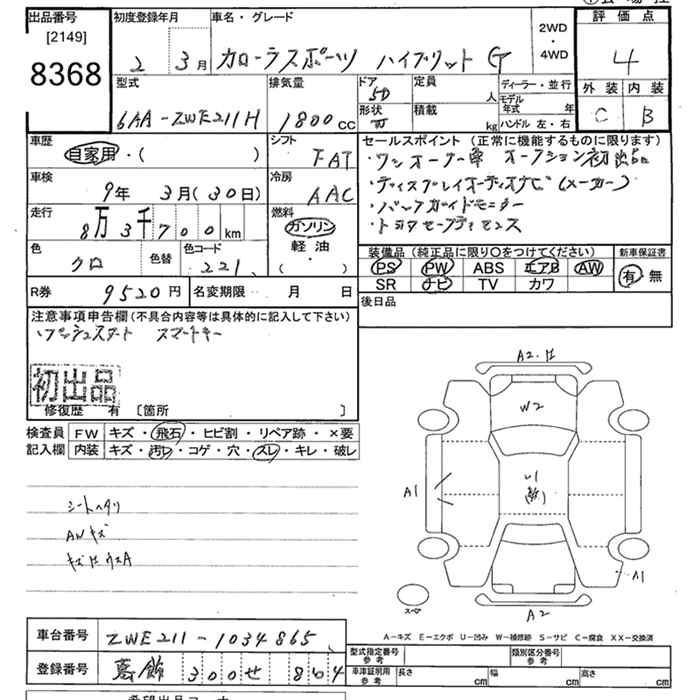 出品番号 [2149] 8368
初度登録年月 2 3月
車名・グレード カローラスポーツ ハイブリット G
2WD・4WD
評価点 4
型式 6AA-ZWE211H
排気量 1800cc
ドア 5D
形状
定員 人
積載 kg
ディーラー・並行
モデル年式 年
ハンドル 左・右
外装 C 内装 B
車歴 自家用・( )
シフト FAT
セールスポイント (正常に機能するものに限ります)
・ワンオーナー車 オークション初出品
・ディスプレイオーディオナビ(メーカー)
・バックガイドモニター
・トヨタセーフティセンス
車検 9年 3月(30日)
冷房 AAC
走行 8万3千700km
燃料 ガソリン・軽油・( )
色 クロ
色替
色コード 221
装備品(純正品に限り○をつけてください)
新車保証書
PS PW ABS エアB AW
SR ナビ TV カワ
有・無
R券 9520円
名変期限 月 日
後日品
注意事項申告欄(不具合内容等は具体的に記入して下さい)
プッシュスタート スマートキー
初出品
修復歴 有 [箇所 ]
検査員記入欄
FW キズ・飛石・ヒビ割・リペア跡・×要
内装 キズ・汚レ・コゲ・穴・スレ・キレ・破レ
シートヘタリ
AWキズ
A2
W2
A1
U1
A1
A2
スペア
A-キズ E-エクボ U-凹み W-補修跡 S-サビ C-腐食 XX-交換済
車台番号 ZWE211-1034865
登録番号 300せ 864
型式指定番号 参考
類別区分番号 参考
車庫証明用 参考 長さ cm 幅 cm 高さ cm